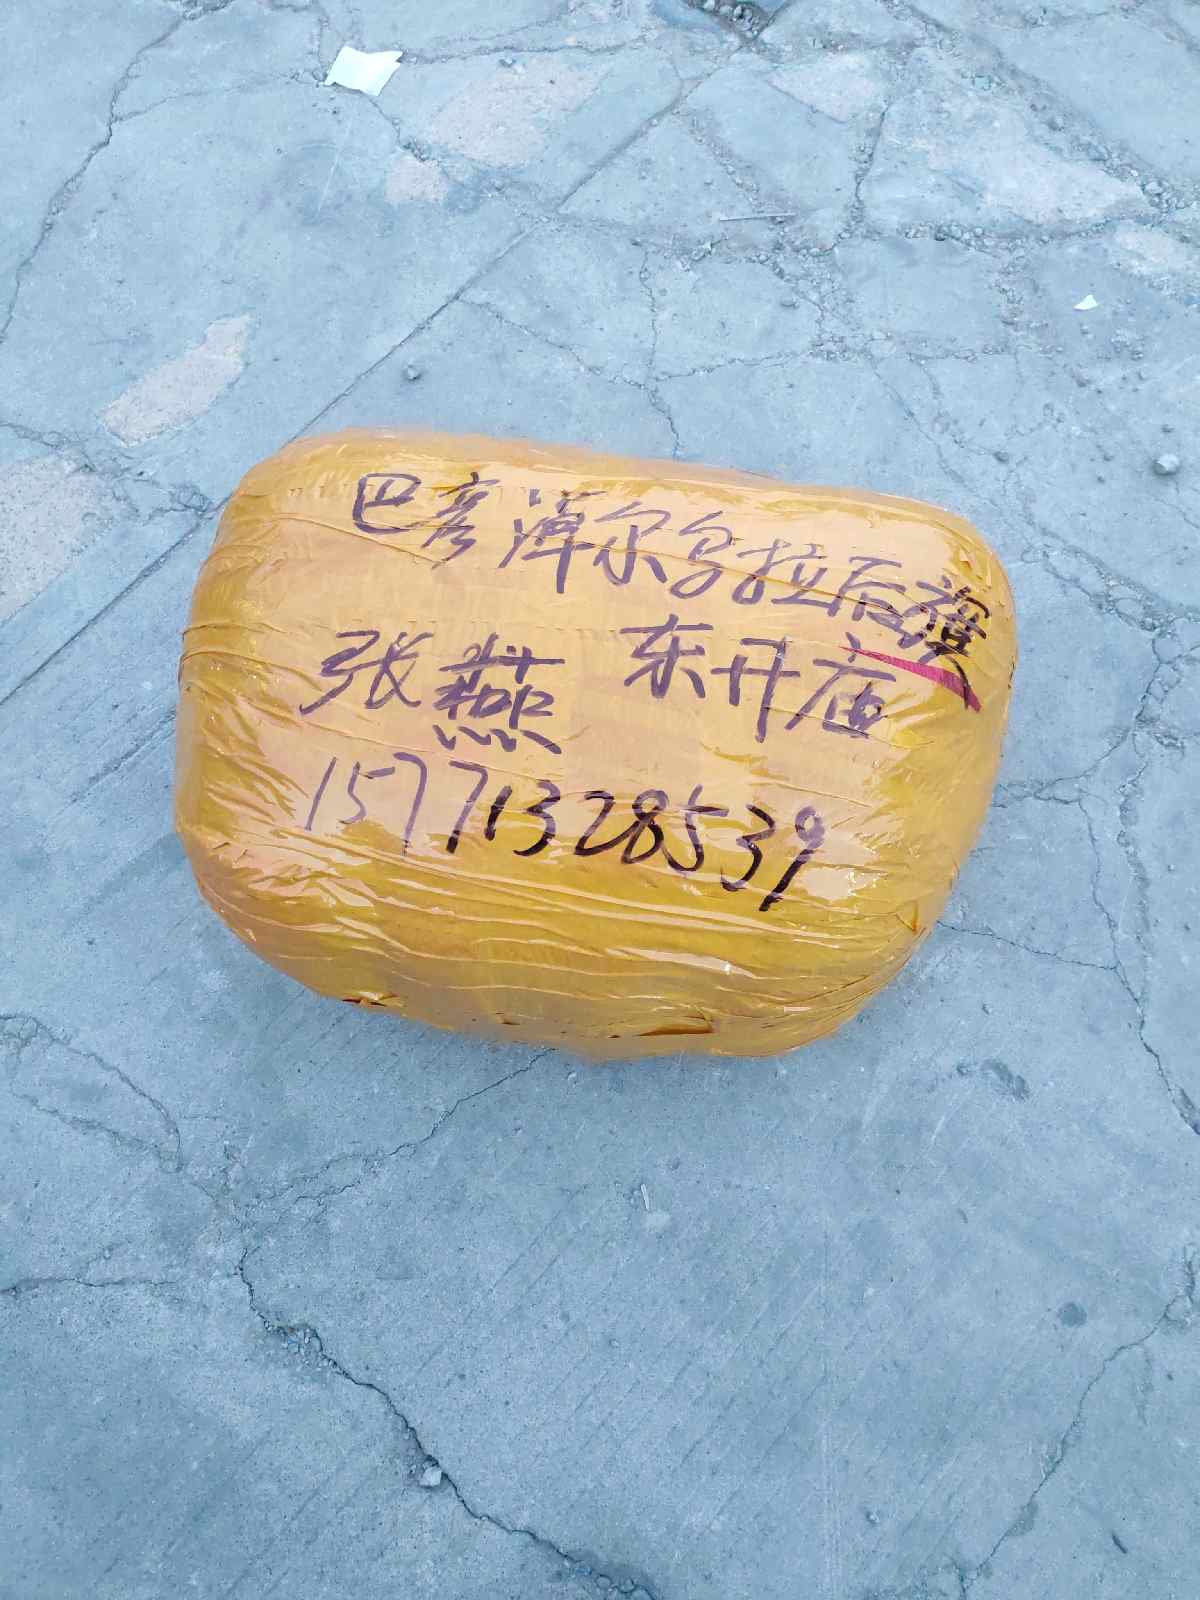 巴彦淖尔乌拉后旗
张燕 东升庙
15771328539